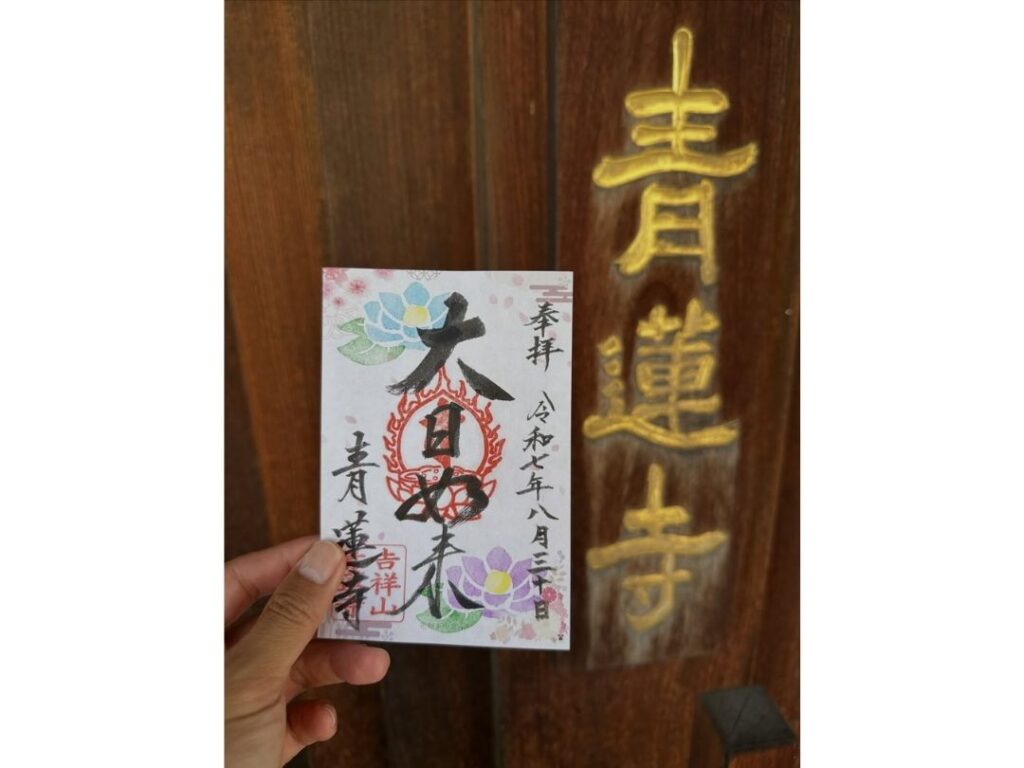 青蓮寺
奉拝 令和七年八月三十日
大日如来
吉祥山
青蓮寺